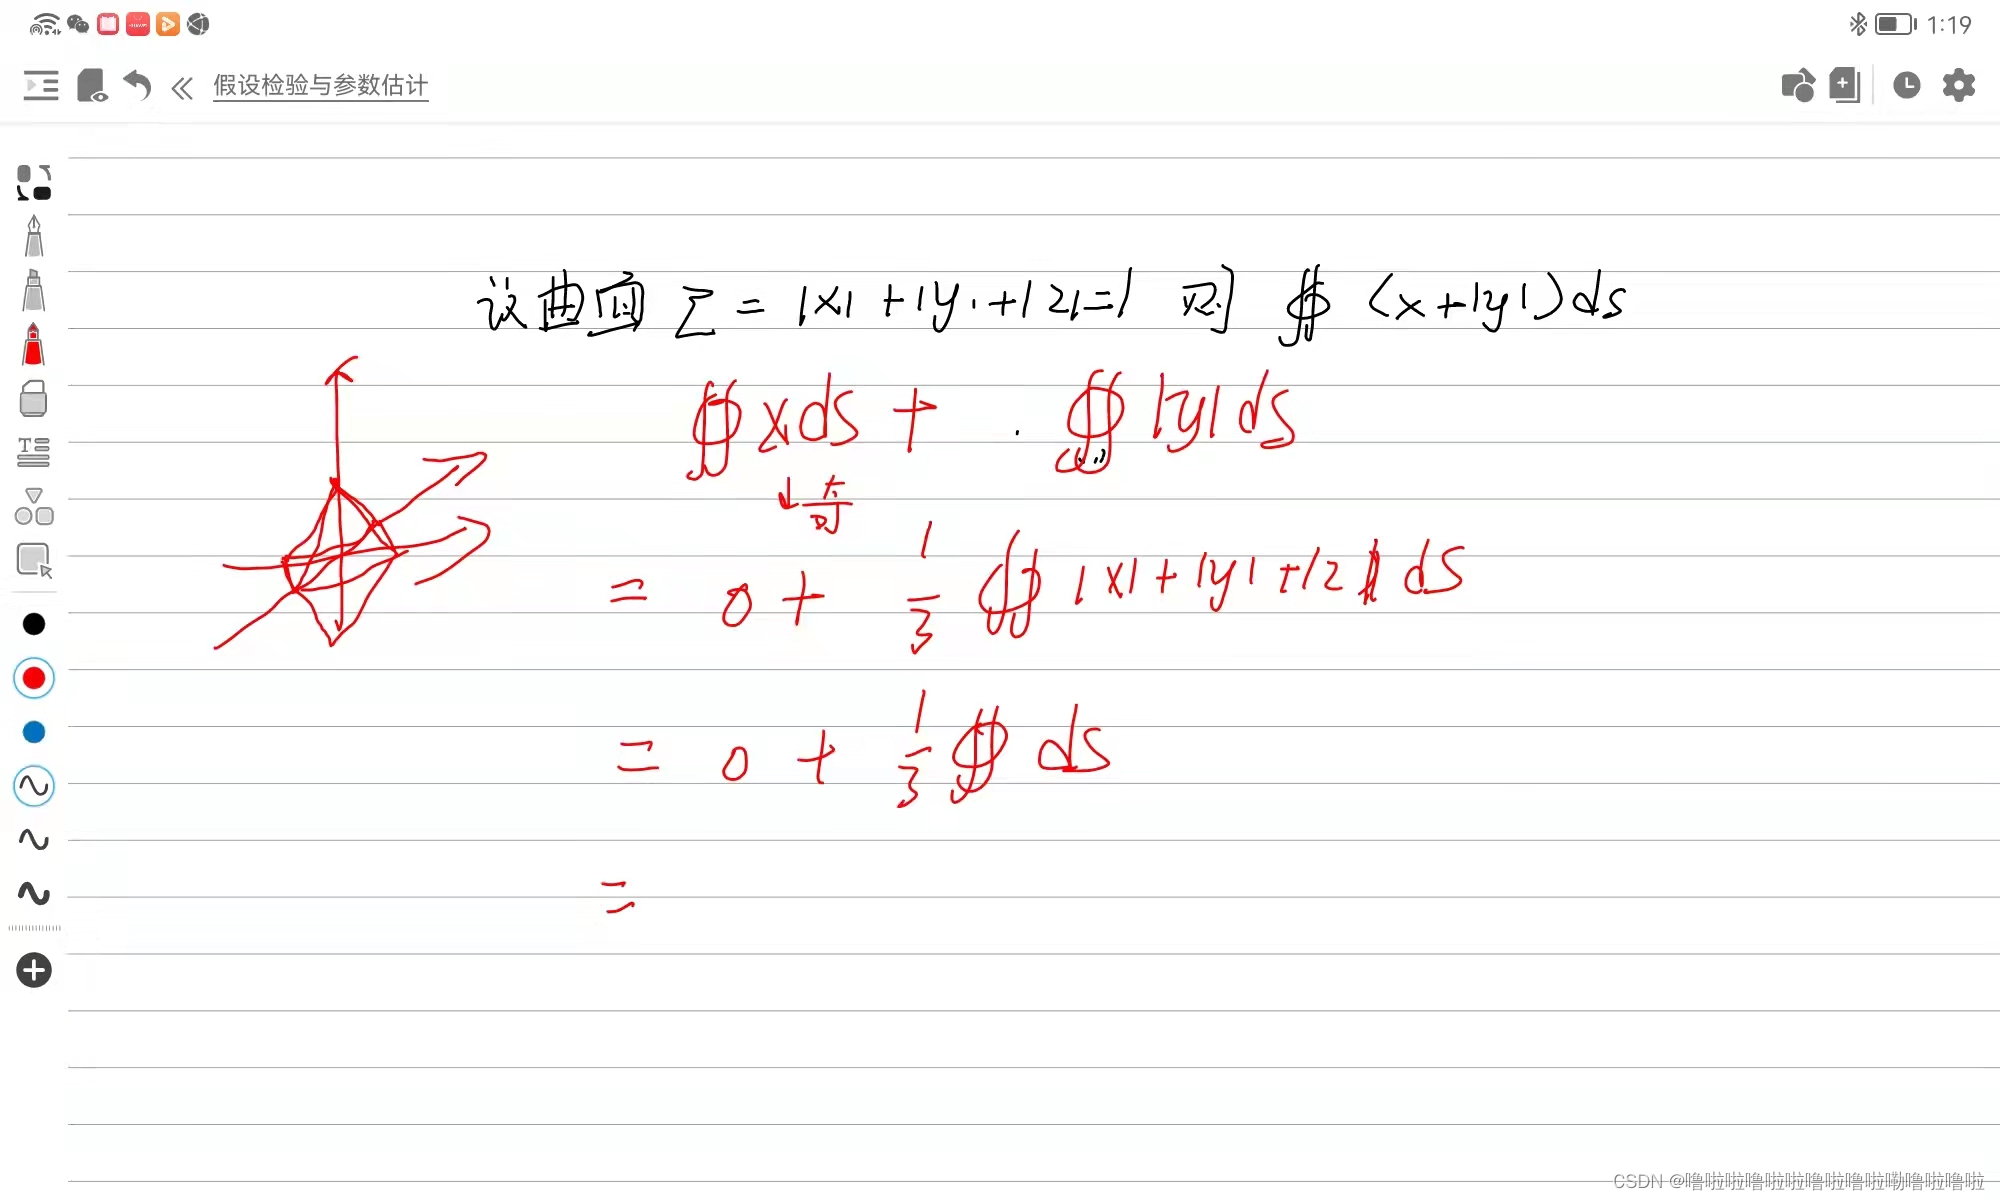 1:19
假设检验与参数估计
设曲面 Σ = |x| + |y| + |z| = 1 则 ∯ (x + |y|) ds
∯ x ds + ∯ |y| ds
↓ 奇
= 0 + 1/3 ∯ |x| + |y| + |z| ds
= 0 + 1/3 ∯ ds
=
CSDN @噜啦啦噜啦啦噜啦噜啦嘞噜啦噜啦